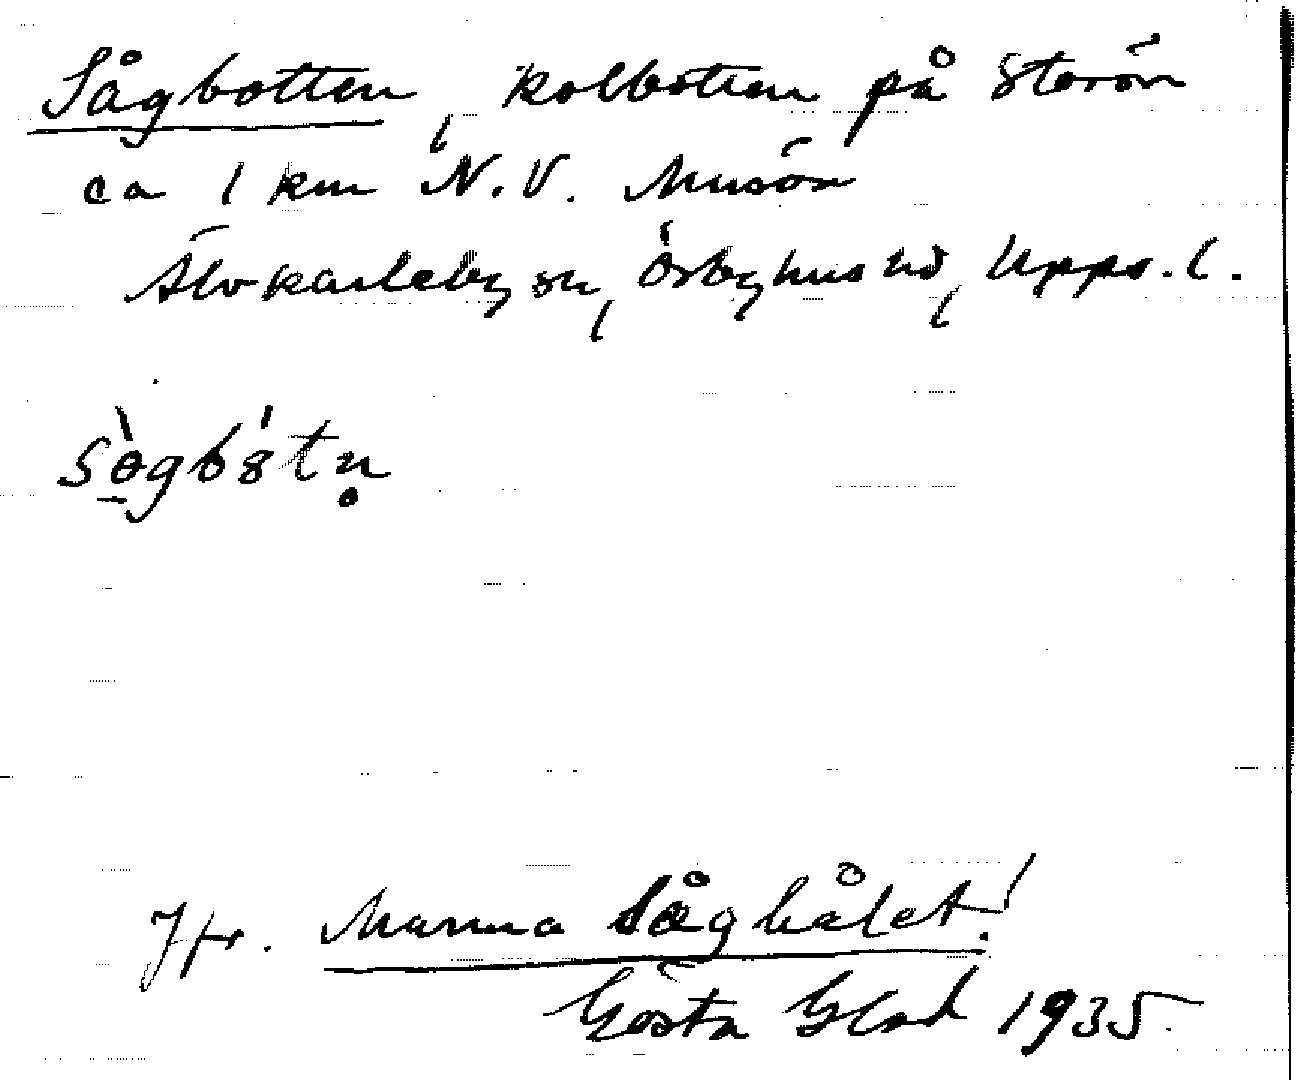 Sågbotten, kolbotten på Storön
ca 1 km N.V. Musön
Älvkarleby sn, Örbyhus hd, Upps. l.
sògbótn̥
Jfr. Marma såghålet!
Gösta Glad 1935.